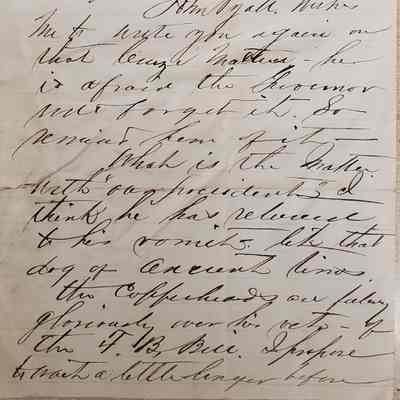 John Pyatt. Wishes
me to write you again on
that lease matter - he
is afraid the Governor
will forget it. So
remind him of it -
What is the matter
with "our president" I
think he has returned
to his vomit - like that
dog of ancient times.
The Copperheads are
gloriously over his veto - of
the F. B. Bill. I propose
to wait a little longer before